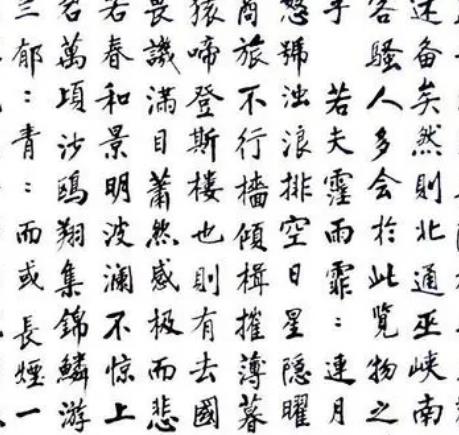 述备矣然則北通巫峡南
客騷人多会於此覽物之
乎 若夫霪雨霏：連月
怒號浊浪排空日星隱曜
商旅不行檣傾楫摧薄暮
猿啼登斯樓也則有去國
畏譏滿目蕭然感极而悲
若春和景明波澜不惊上
萬頃沙鷗翔集錦鱗游
郁：青：而或長煙一